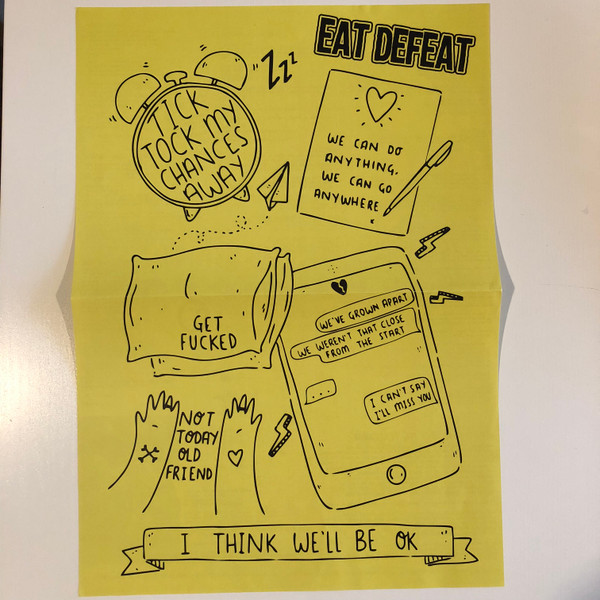 EAT DEFEAT
ZZZ
TICK
TOCK MY
CHANCES
AWAY
WE CAN DO
ANYTHING.
WE CAN GO
ANYWHERE
GET
FUCKED
WE'VE GROWN APART
WE WEREN'T THAT CLOSE
FROM THE START
...
I CAN'T SAY
I'LL MISS YOU
NOT
TODAY
OLD
FRIEND
I THINK WE'LL BE OK